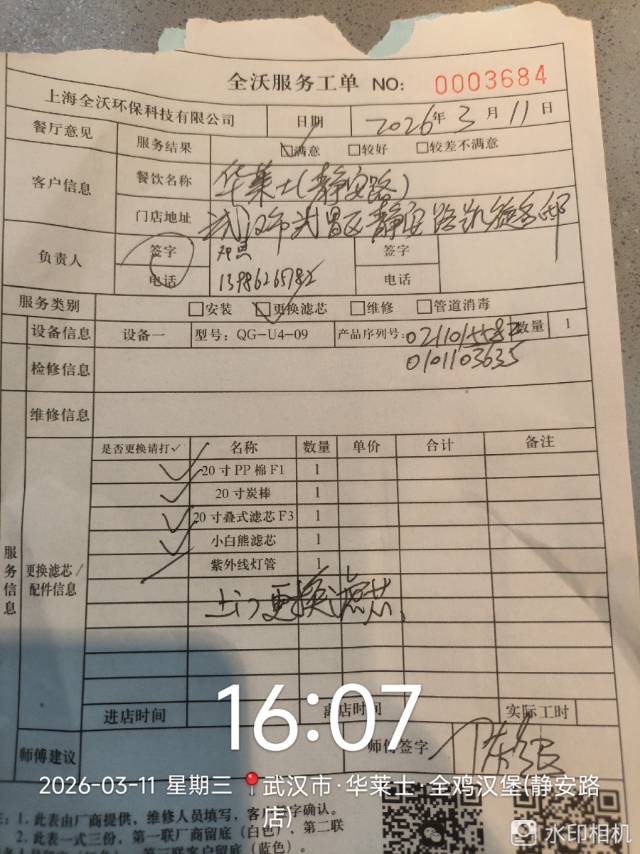 全沃服务工单 NO: 0003684
上海全沃环保科技有限公司 日期 2026年3月11日
餐厅意见 服务结果 满意 较好 较差不满意
客户信息 餐饮名称 华莱士(静安路)
门店地址 武汉市武昌区静安路凯旋名邸
负责人 签字 签字
电话 电话
服务类别 安装 更换滤芯 维修 管道消毒
设备信息 设备一 型号: QG-U4-09 产品序列号: 数量 1
0101103635
检修信息
维修信息
服务信息 更换滤芯/配件信息
是否更换请打✓ 名称 数量 单价 合计 备注
✓ 20寸PP棉F1 1
✓ 20寸炭棒 1
✓ 20寸叠式滤芯F3 1
✓ 小白熊滤芯 1
紫外线灯管 1
上门更换滤芯,
进店时间 离店时间 实际工时
16:07
师傅建议 师傅签字
2026-03-11 星期三 武汉市·华莱士·全鸡汉堡(静安路店)
注: 1. 此表由厂商提供，维修人员填写，客户签字确认。
2. 此表一式三份，第一联厂商留底(白色)，第二联
第三联客户留底(蓝色)。
水印相机